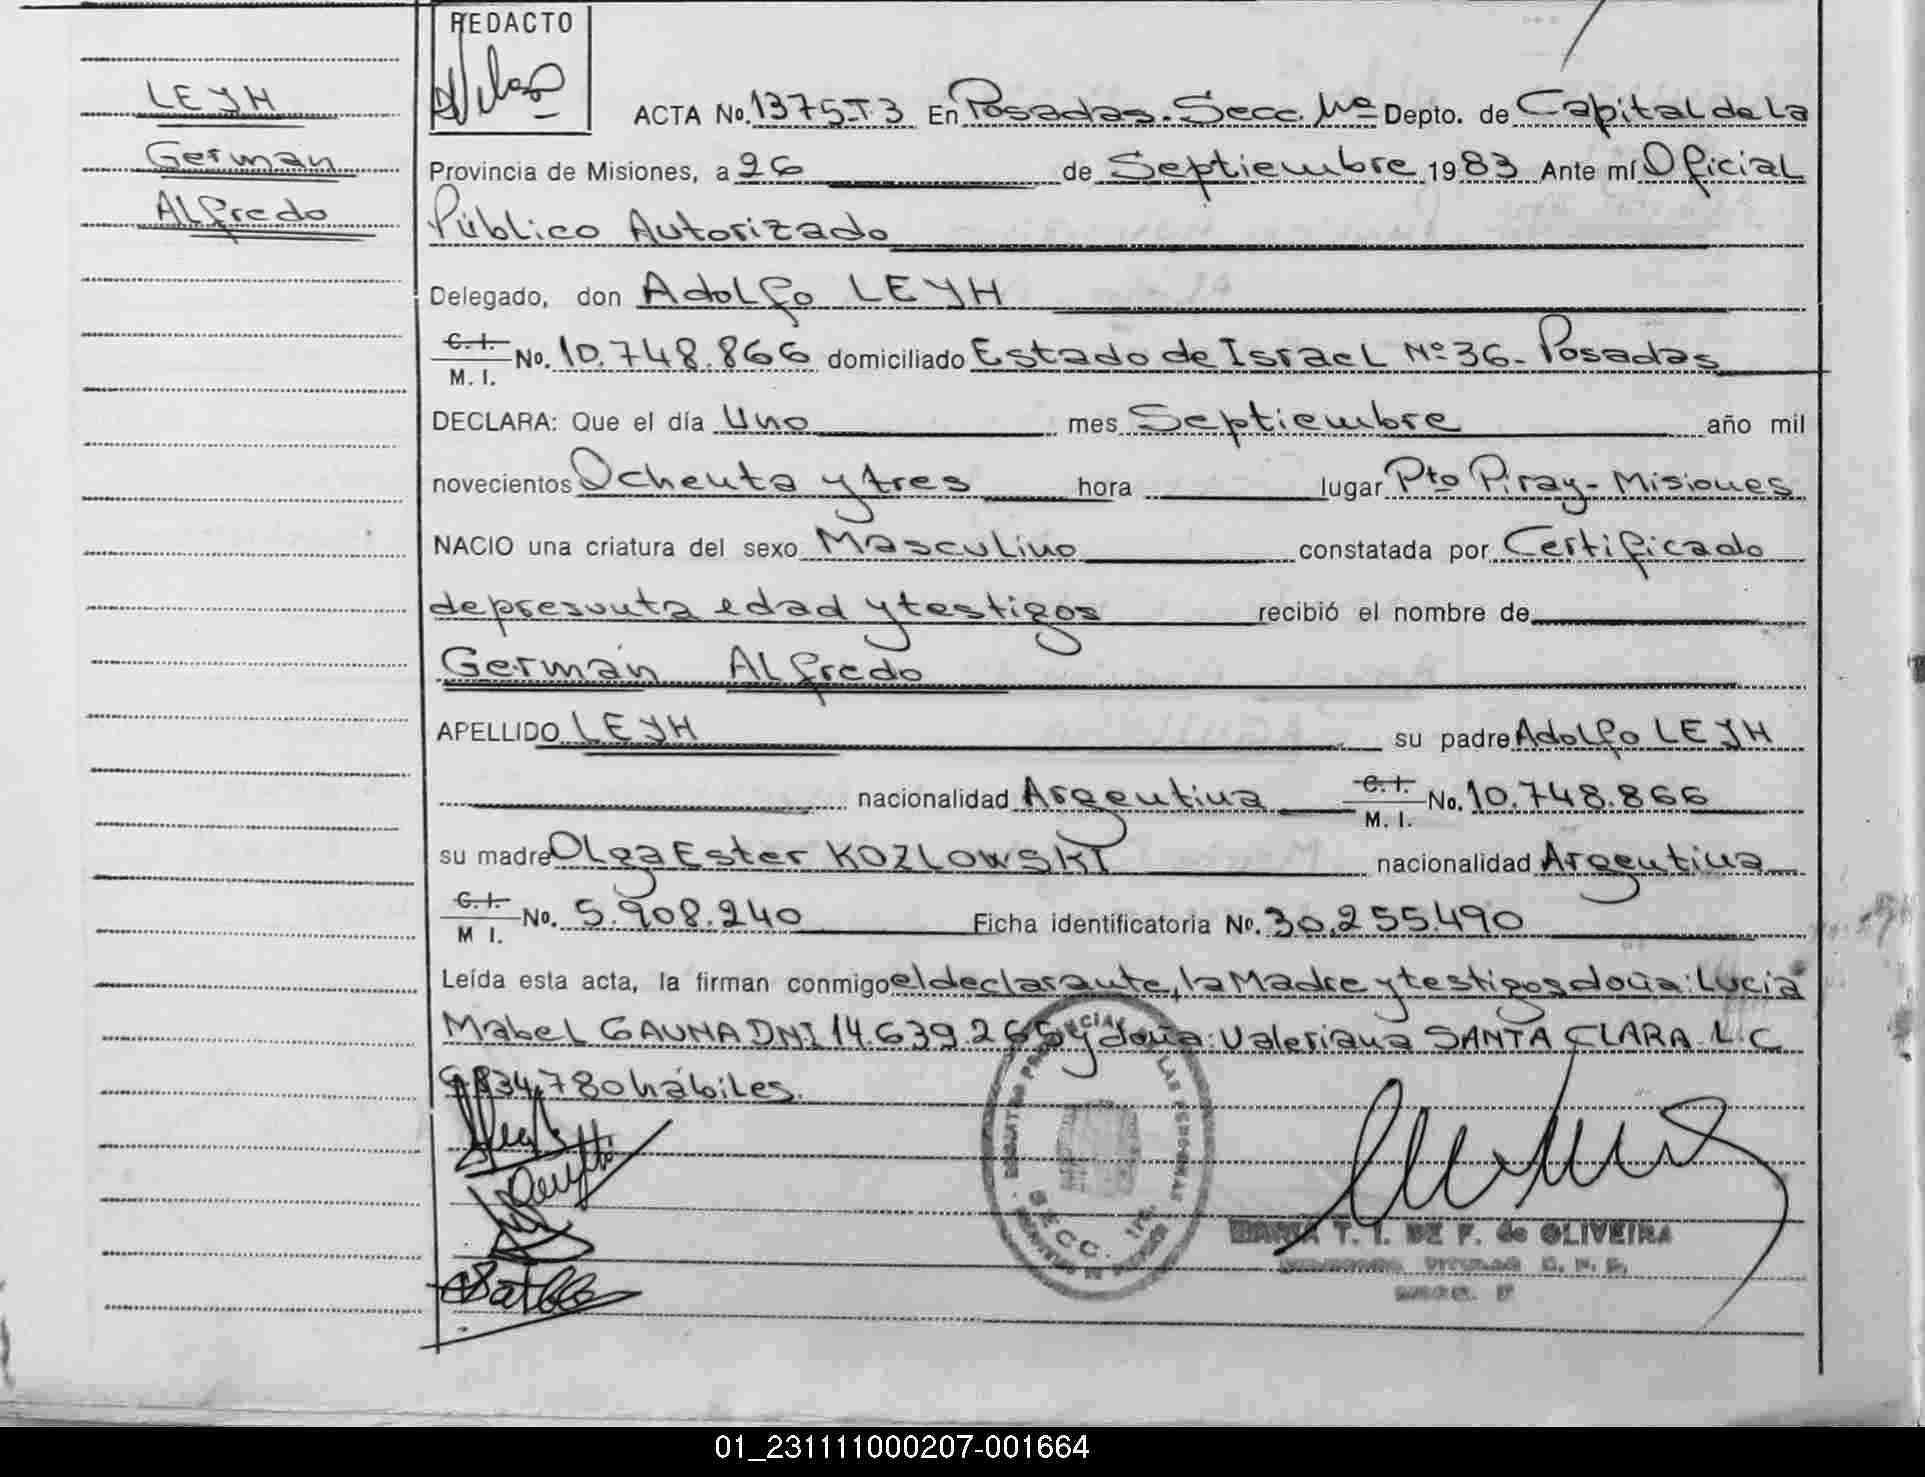 REDACTO
LEYH
German
Alfredo
ACTA No. 1375-T3 En Posadas. Secc. 1ra Depto. de Capital de La
Provincia de Misiones, a 26 de Septiembre 1983 Ante mí Oficial
Público Autorizado
Delegado, don Adolfo LEYH
C. I. M. I. No. 10.748.866 domiciliado Estado de Israel Nº 36- Posadas
DECLARA: Que el día Uno mes Septiembre año mil
novecientos Ochenta y tres hora lugar Pto Piray- Misiones
NACIO una criatura del sexo Masculino constatada por Certificado
de presunta edad y testigos recibió el nombre de
Germán Alfredo
APELLIDO LEYH su padre Adolfo LEYH
nacionalidad Argentina C. I. M. I. No. 10.748.866
su madre Olga Ester KOZLOWSKI nacionalidad Argentina
C. I. M I. No. 5.908.240 Ficha identificatoria No. 30.255.490
Leída esta acta, la firman conmigo el declarante, la Madre y testigos doña: Lucia
Mabel GAUNA DNI 14.639.265 y doña: Valeriana SANTA CLARA L.C
834.780 hábiles.
SECC. 1ra.
MARIA T. I. DE F. de OLIVEIRA
01_231111000207-001664